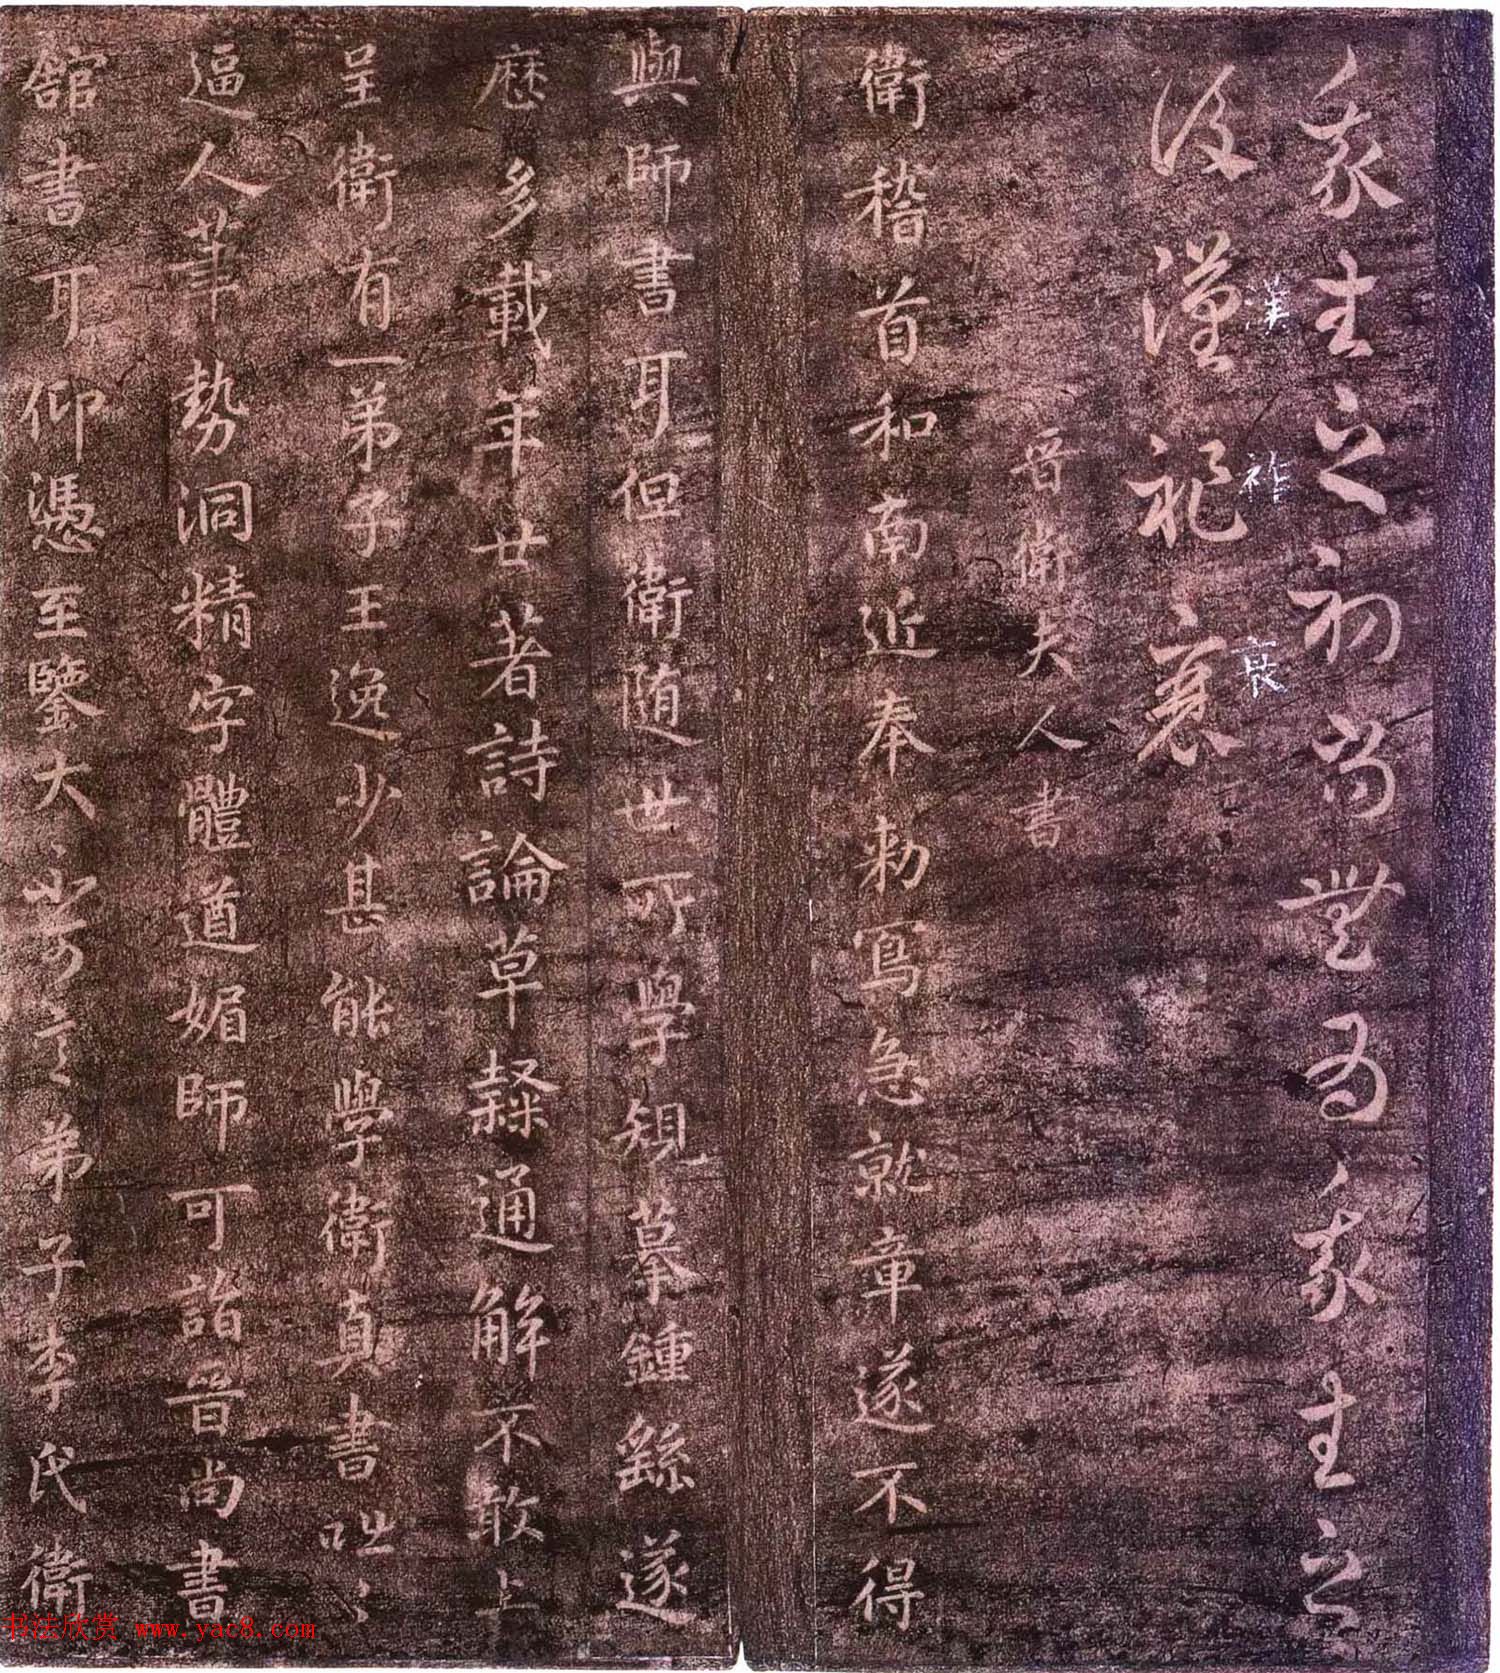 我生之初尚無為我生之
後漢祀衰
漢
祚
衰
晉衛夫人書
衛稽首和南近奉勅寫急就章遂不得
與師書耳但衛随世所學規摹鍾繇遂
歷多載年廿著詩論草隸通解不敢上
呈衛有一弟子王逸少甚能學衛真書咄〻
逼人筆勢洞精字體遒媚師可詣晉尚書
館書耳仰憑至鑒大不可言弟子李氏衛
书法欣赏 www.yac8.com